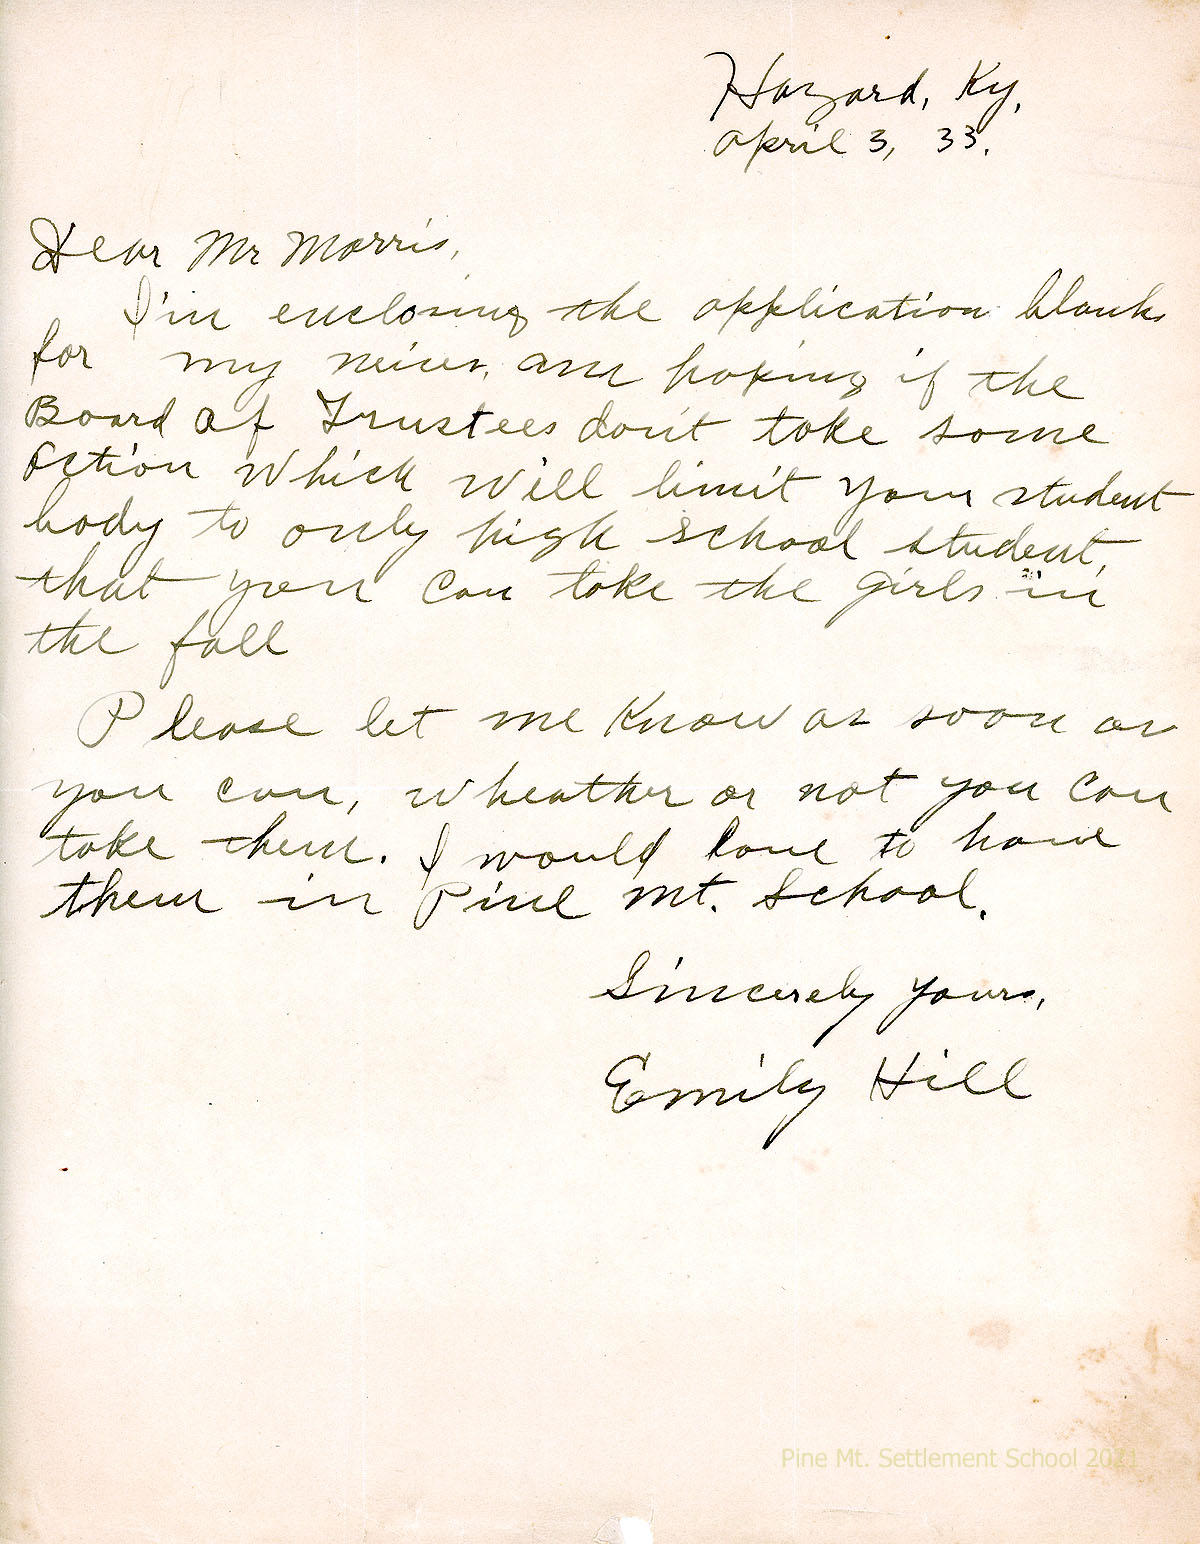 Hazard, Ky,
April 3, 33.
Dear Mr Morris,
I'm enclosing the application blanks
for my neices, am hoping if the
Board of Trustees don't take some
Action which will limit your student
body to only high school student,
that you can take the girls in
the fall
Please let me know as soon as
you can, wheather or not you can
take them. I would love to have
them in Pine Mt. School.
Sincerely yours,
Emily Hill
Pine Mt. Settlement School 2021